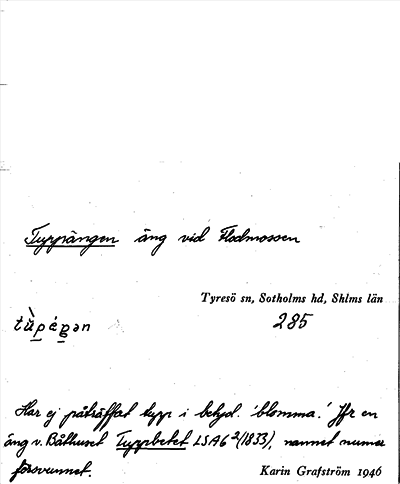 Typpängen äng vid Flodmossen
Tyresö sn, Sotholms hd, Shlms län
285
Har ej påträffat typp i betyd. 'blomma.' Jfr en
äng v. Båthuset Typpbetet LSA6²(1833), namnet numer
försvunnet.
Karin Grafström 1946